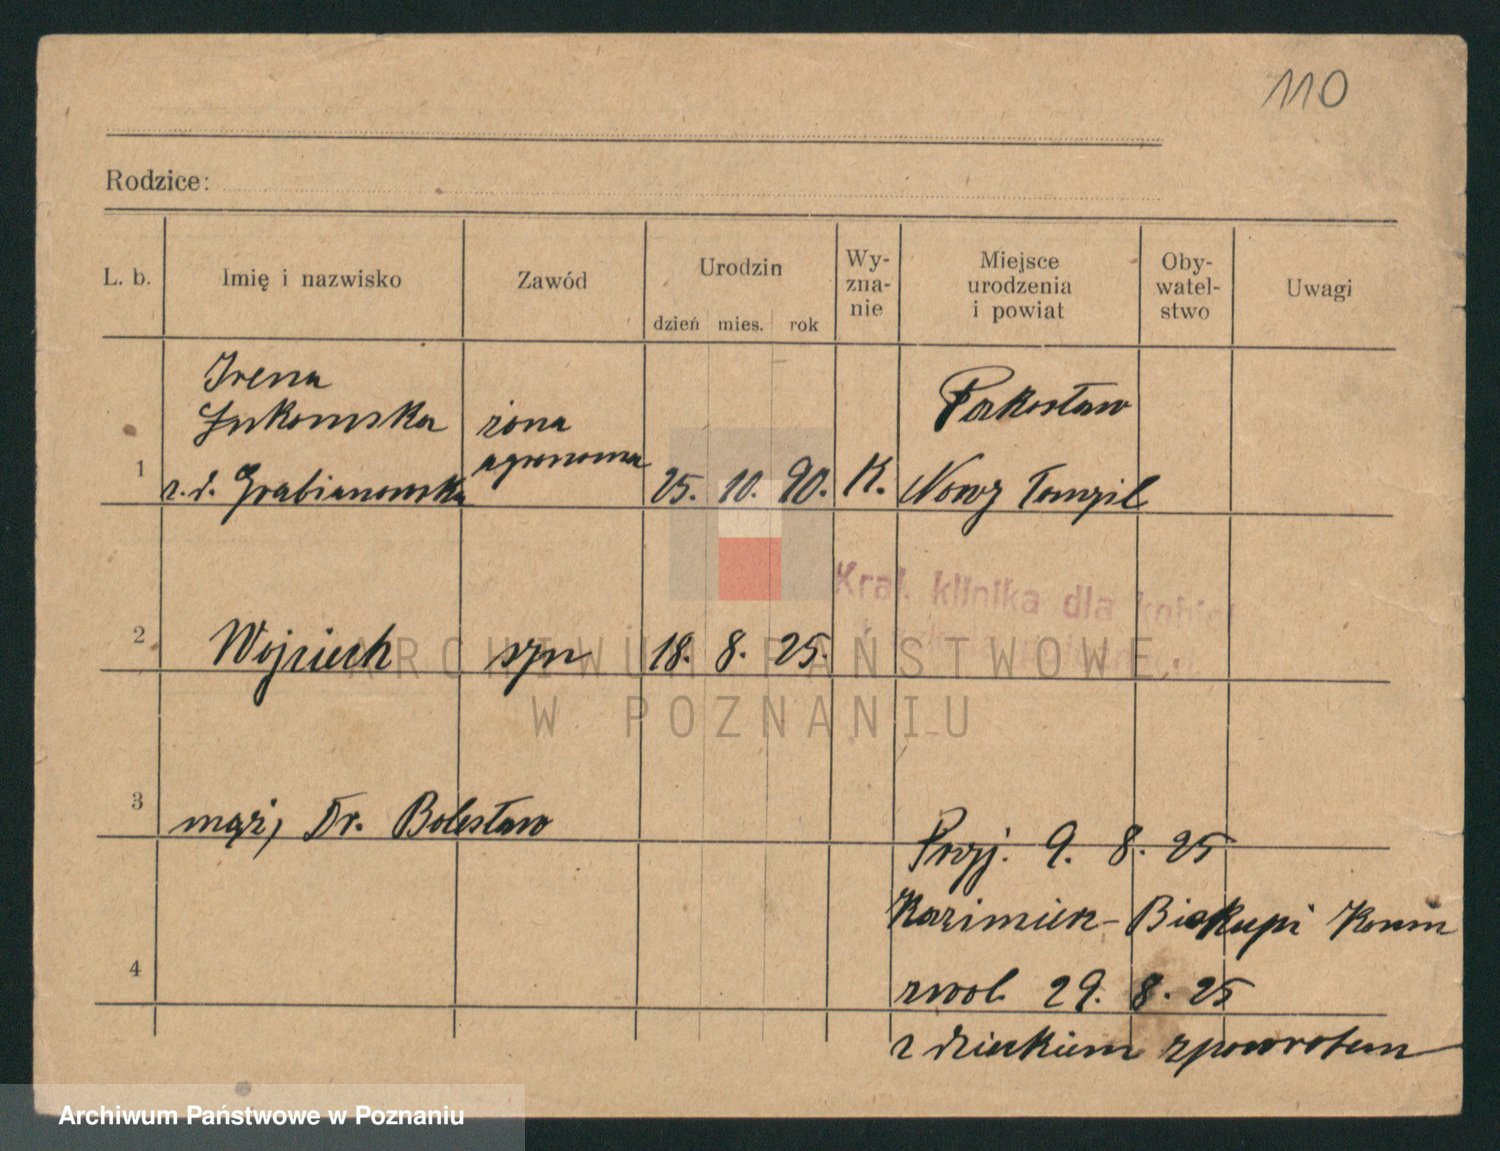 110
Rodzice:
L. b.
Imię i nazwisko
Zawód
Urodzin
dzień mies. rok
Wy-
zna-
nie
Miejsce
urodzenia
i powiat
Oby-
watel-
stwo
Uwagi
1
Irena
Łukomska
z. d. Grabianowska
żona
agronoma
25. 10. 90.
K.
Pakosław
Nowy Tomyśl
Kraj. klinika dla kobiet
2
Wojciech
syn
18. 8. 25.
3
mąż, Dr. Bolesław
Przyj. 9. 8. 25
Kazimierz-Biskupi Konin
4
zwol. 29. 8. 25
z dzieckiem zpowrotem
ARCHIWUM PAŃSTWOWE
W POZNANIU
Archiwum Państwowe w Poznaniu